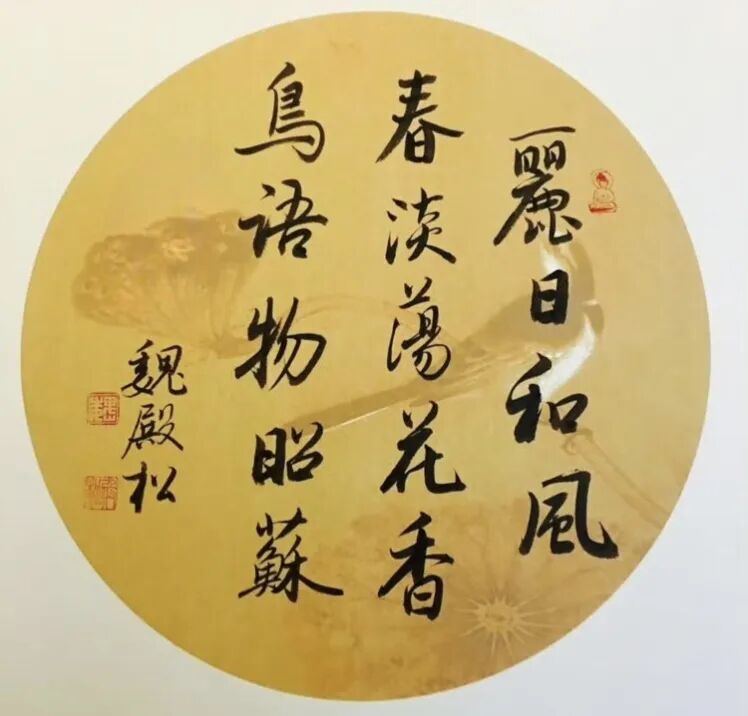 麗日和風
春淡蕩花香
鳥語物昭蘇
魏殿松